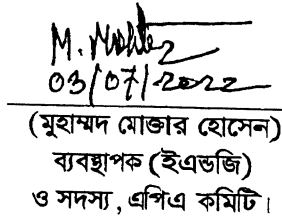 M. Mokter
03/07/2022
(মুহাম্মদ মোক্তার হোসেন)
ব্যবস্থাপক (ইএন্ডজি)
ও সদস্য, এপিএ কমিটি।